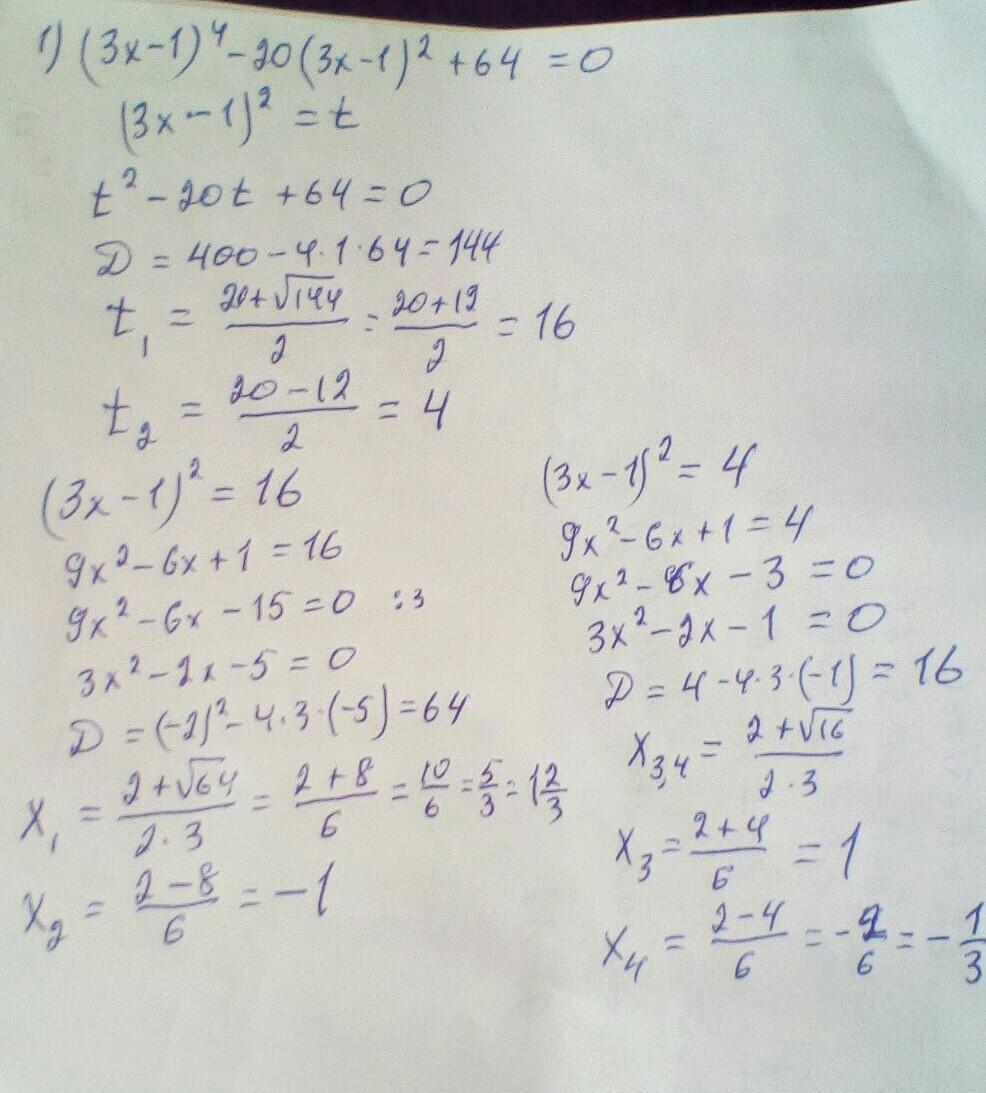 1) (3x-1)⁴-20(3x-1)²+64=0
(3x-1)²=t
t²-20t+64=0
D=400-4·1·64=144
t₁ = (20+√144)/2 = (20+12)/2 = 16
t₂ = (20-12)/2 = 4
(3x-1)²=16
9x²-6x+1=16
9x²-6x-15=0 :3
3x²-2x-5=0
D=(-2)²-4·3·(-5)=64
x₁ = (2+√64)/(2·3) = (2+8)/6 = 10/6 = 5/3 = 1 2/3
x₂ = (2-8)/6 = -1
(3x-1)²=4
9x²-6x+1=4
9x²-6x-3=0
3x²-2x-1=0
D=4-4·3·(-1)=16
x₃,₄ = (2+√16)/(2·3)
x₃ = (2+4)/6 = 1
x₄ = (2-4)/6 = -2/6 = -1/3